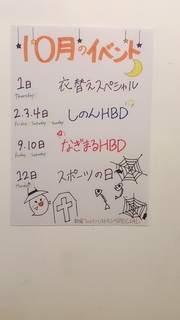 10月のイベント
1日 衣替えスペシャル
Thursday
2.3.4日 しのんHBD
Friday Saturday Sunday
9.10日 なぎまるHBD
Friday Saturday
12日 スポーツの日
Monday